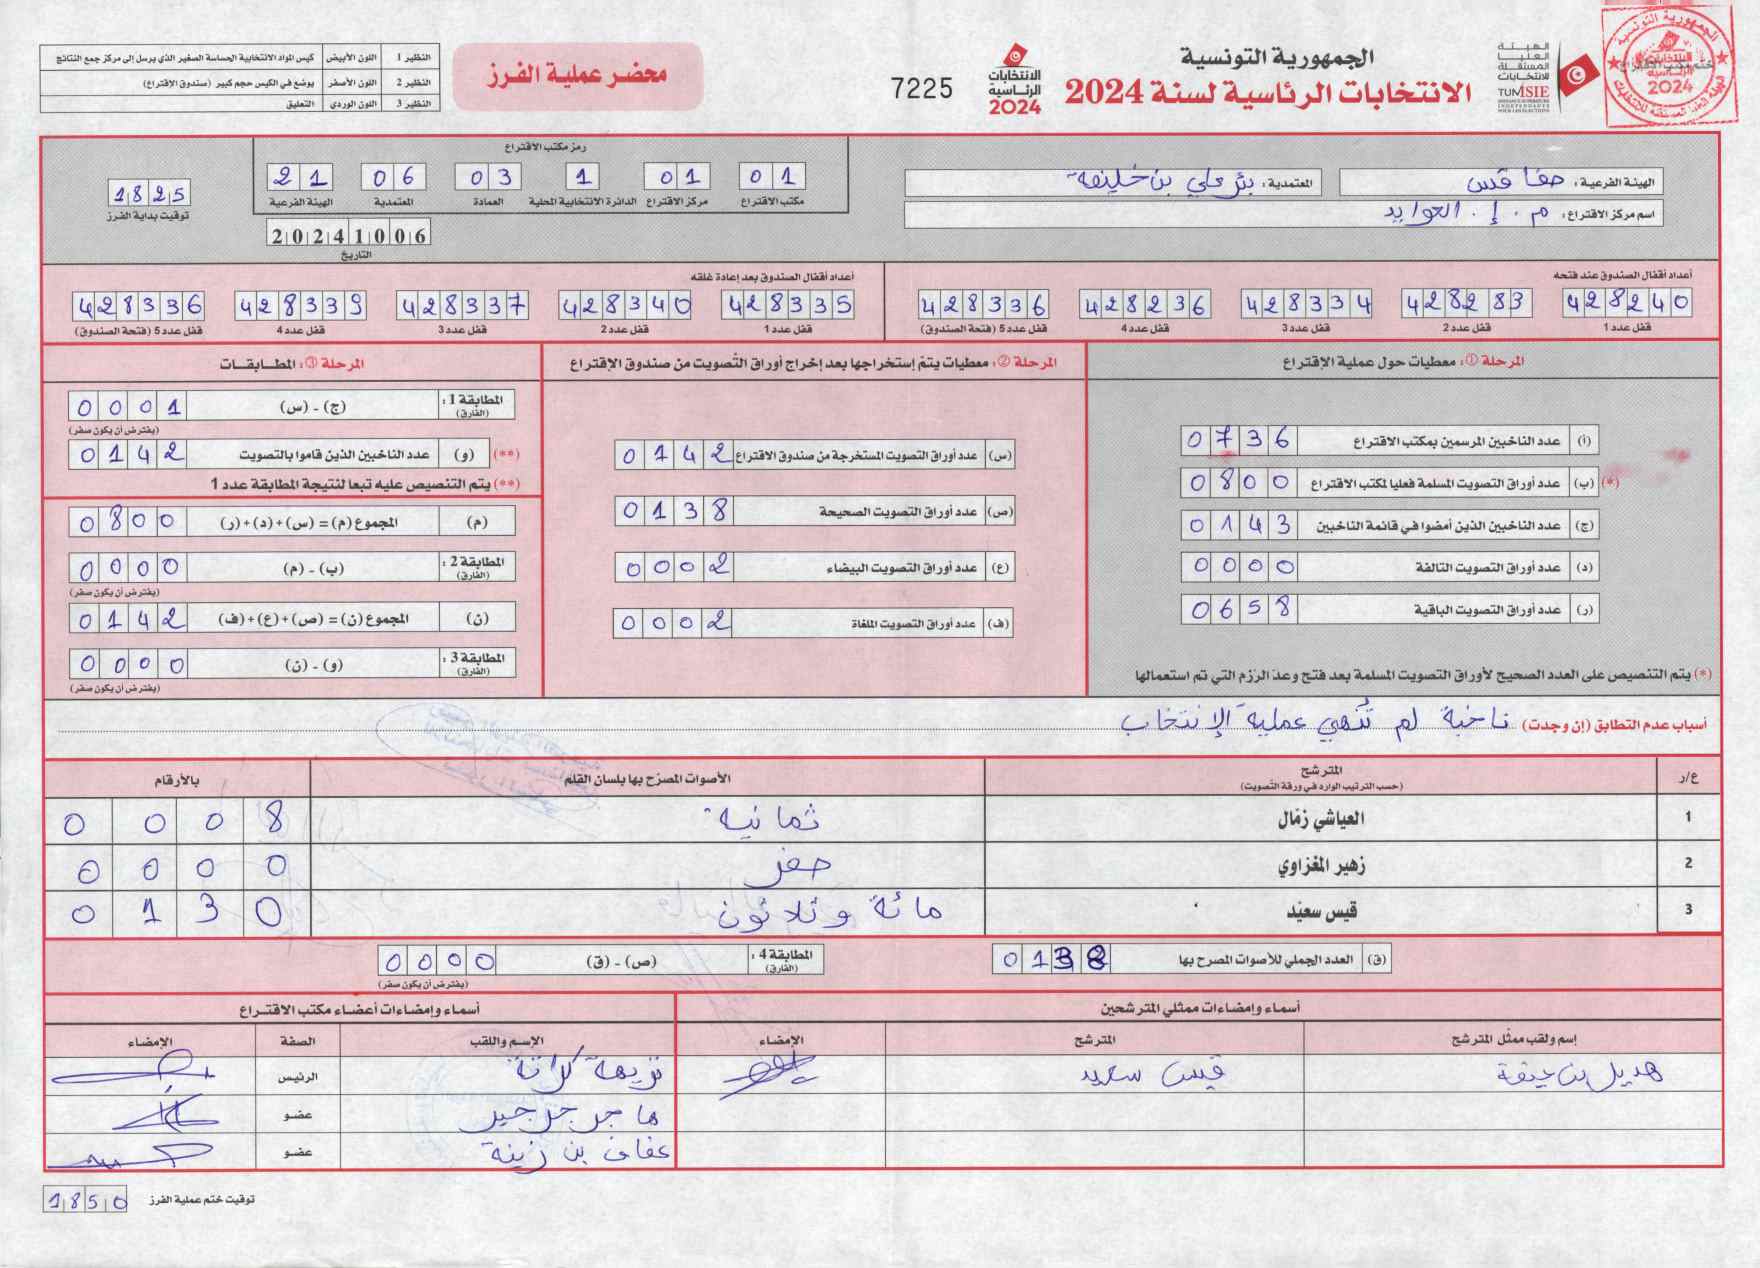 الجمهورية التونسية
الانتخابات الرئاسية لسنة 2024
الهيئة العليا المستقلة للانتخابات
TUNISIE
الانتخابات الرئاسية 2024
7225
محضر عملية الفرز
النظير 1 اللون الأبيض كيس المواد الانتخابية الحساسة الصغير الذي يرسل إلى مركز جمع النتائج
النظير 2 اللون الأصفر يوضع في الكيس حجم كبير (صندوق الاقتراع)
النظير 3 اللون الوردي التعليق
الهيئة الفرعية: صفاقس
المعتمدية: بئر علي بن خليفة
اسم مركز الاقتراع: م. إ. العوابد
رمز مكتب الاقتراع
01 01 1 03 06 21
مكتب الاقتراع مركز الاقتراع الدائرة الانتخابية المحلية العمادة المعتمدية الهيئة الفرعية
20241006
التاريخ
1825
توقيت بداية الفرز
أعداد أقفال الصندوق عند فتحه
428240 428283 428334 428236 428336
قفل عدد 1 قفل عدد 2 قفل عدد 3 قفل عدد 4 قفل عدد 5 (فتحة الصندوق)
أعداد أقفال الصندوق بعد إعادة غلقه
428335 428340 428337 428339 428336
قفل عدد 1 قفل عدد 2 قفل عدد 3 قفل عدد 4 قفل عدد 5 (فتحة الصندوق)
المرحلة ①: معطيات حول عملية الاقتراع
(أ) عدد الناخبين المرسمين بمكتب الاقتراع 0736
(*) (ب) عدد أوراق التصويت المسلمة فعليا لمكتب الاقتراع 0800
(ج) عدد الناخبين الذين أمضوا في قائمة الناخبين 0143
(د) عدد أوراق التصويت التالفة 0000
(ر) عدد أوراق التصويت الباقية 0658
(*) يتم التنصيص على العدد الصحيح لأوراق التصويت المسلمة بعد فتح وعد الرزم التي تم استعمالها
المرحلة ②: معطيات يتم إستخراجها بعد إخراج أوراق التصويت من صندوق الإقتراع
(س) عدد أوراق التصويت المستخرجة من صندوق الاقتراع 0142
(ص) عدد أوراق التصويت الصحيحة 0138
(ع) عدد أوراق التصويت البيضاء 0002
(ف) عدد أوراق التصويت الملغاة 0002
المرحلة ③: المطابقات
المطابقة 1: (الفارق) (ج) - (س) 0001
(يفترض أن يكون صفر)
(**) (و) عدد الناخبين الذين قاموا بالتصويت 0142
(**) يتم التنصيص عليه تبعا لنتيجة المطابقة عدد 1
(م) المجموع (م) = (س) + (د) + (ر) 0800
المطابقة 2: (الفارق) (ب) - (م) 0000
(يفترض أن يكون صفر)
(ن) المجموع (ن) = (ص) + (ع) + (ف) 0142
المطابقة 3: (الفارق) (و) - (ن) 0000
(يفترض أن يكون صفر)
أسباب عدم التطابق (إن وجدت) ناخبة لم تنهي عملية الإنتخاب
ع/ر المترشح (حسب الترتيب الوارد في ورقة التصويت) الأصوات المصرّح بها بلسان القلم بالأرقام
1 العياشي زمّال ثمانية 0008
2 زهير المغزاوي صفر 0000
3 قيس سعيّد مائة وثلاثون 0130
(ق) العدد الجملي للأصوات المصرح بها 0138
المطابقة 4: (الفارق) (ص) - (ق) 0000
(يفترض أن يكون صفر)
أسماء وإمضاءات ممثلي المترشحين
إسم ولقب ممثّل المترشح المترشح الإمضاء
قيس سعيد
أسماء وإمضاءات أعضاء مكتب الاقتراع
الإسم واللقب الصفة الإمضاء
الرئيس
عضو
عفاف بن زينة عضو
توقيت ختم عملية الفرز 1850